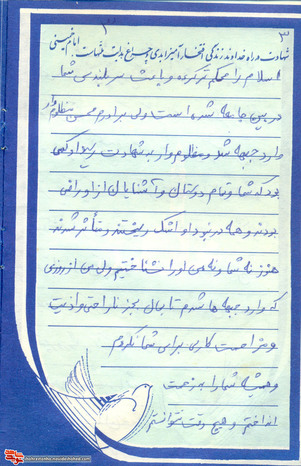 ۳
شهادت در راه خداوند زندگی افتخارآمیز ابدی و چراغ هدایت ملتهاست امام خمینی
اسلام را محکم تر کرده و باعث سربلندی شما
در بین جامعه شده است ولی برادرم محسن مظلوم وار
وارد جبهه شد و مظلوم وار به شهادت رسید او کسی
بود که شما و تمام دوستان و آشنایان از او راضی
بودند و همه در نبود او اشک ریختند و متأثر شدند
هنوز نه شما و نه من او را نشناختیم ولی من از روزی
که وارد جبهه ها شدم تا بحال بجز ناراحتی و اذیت
و مزاحمت کاری برای شما نکردم
و همیشه شما را به زحمت
انداختم و هیچ وقت نتوانستم